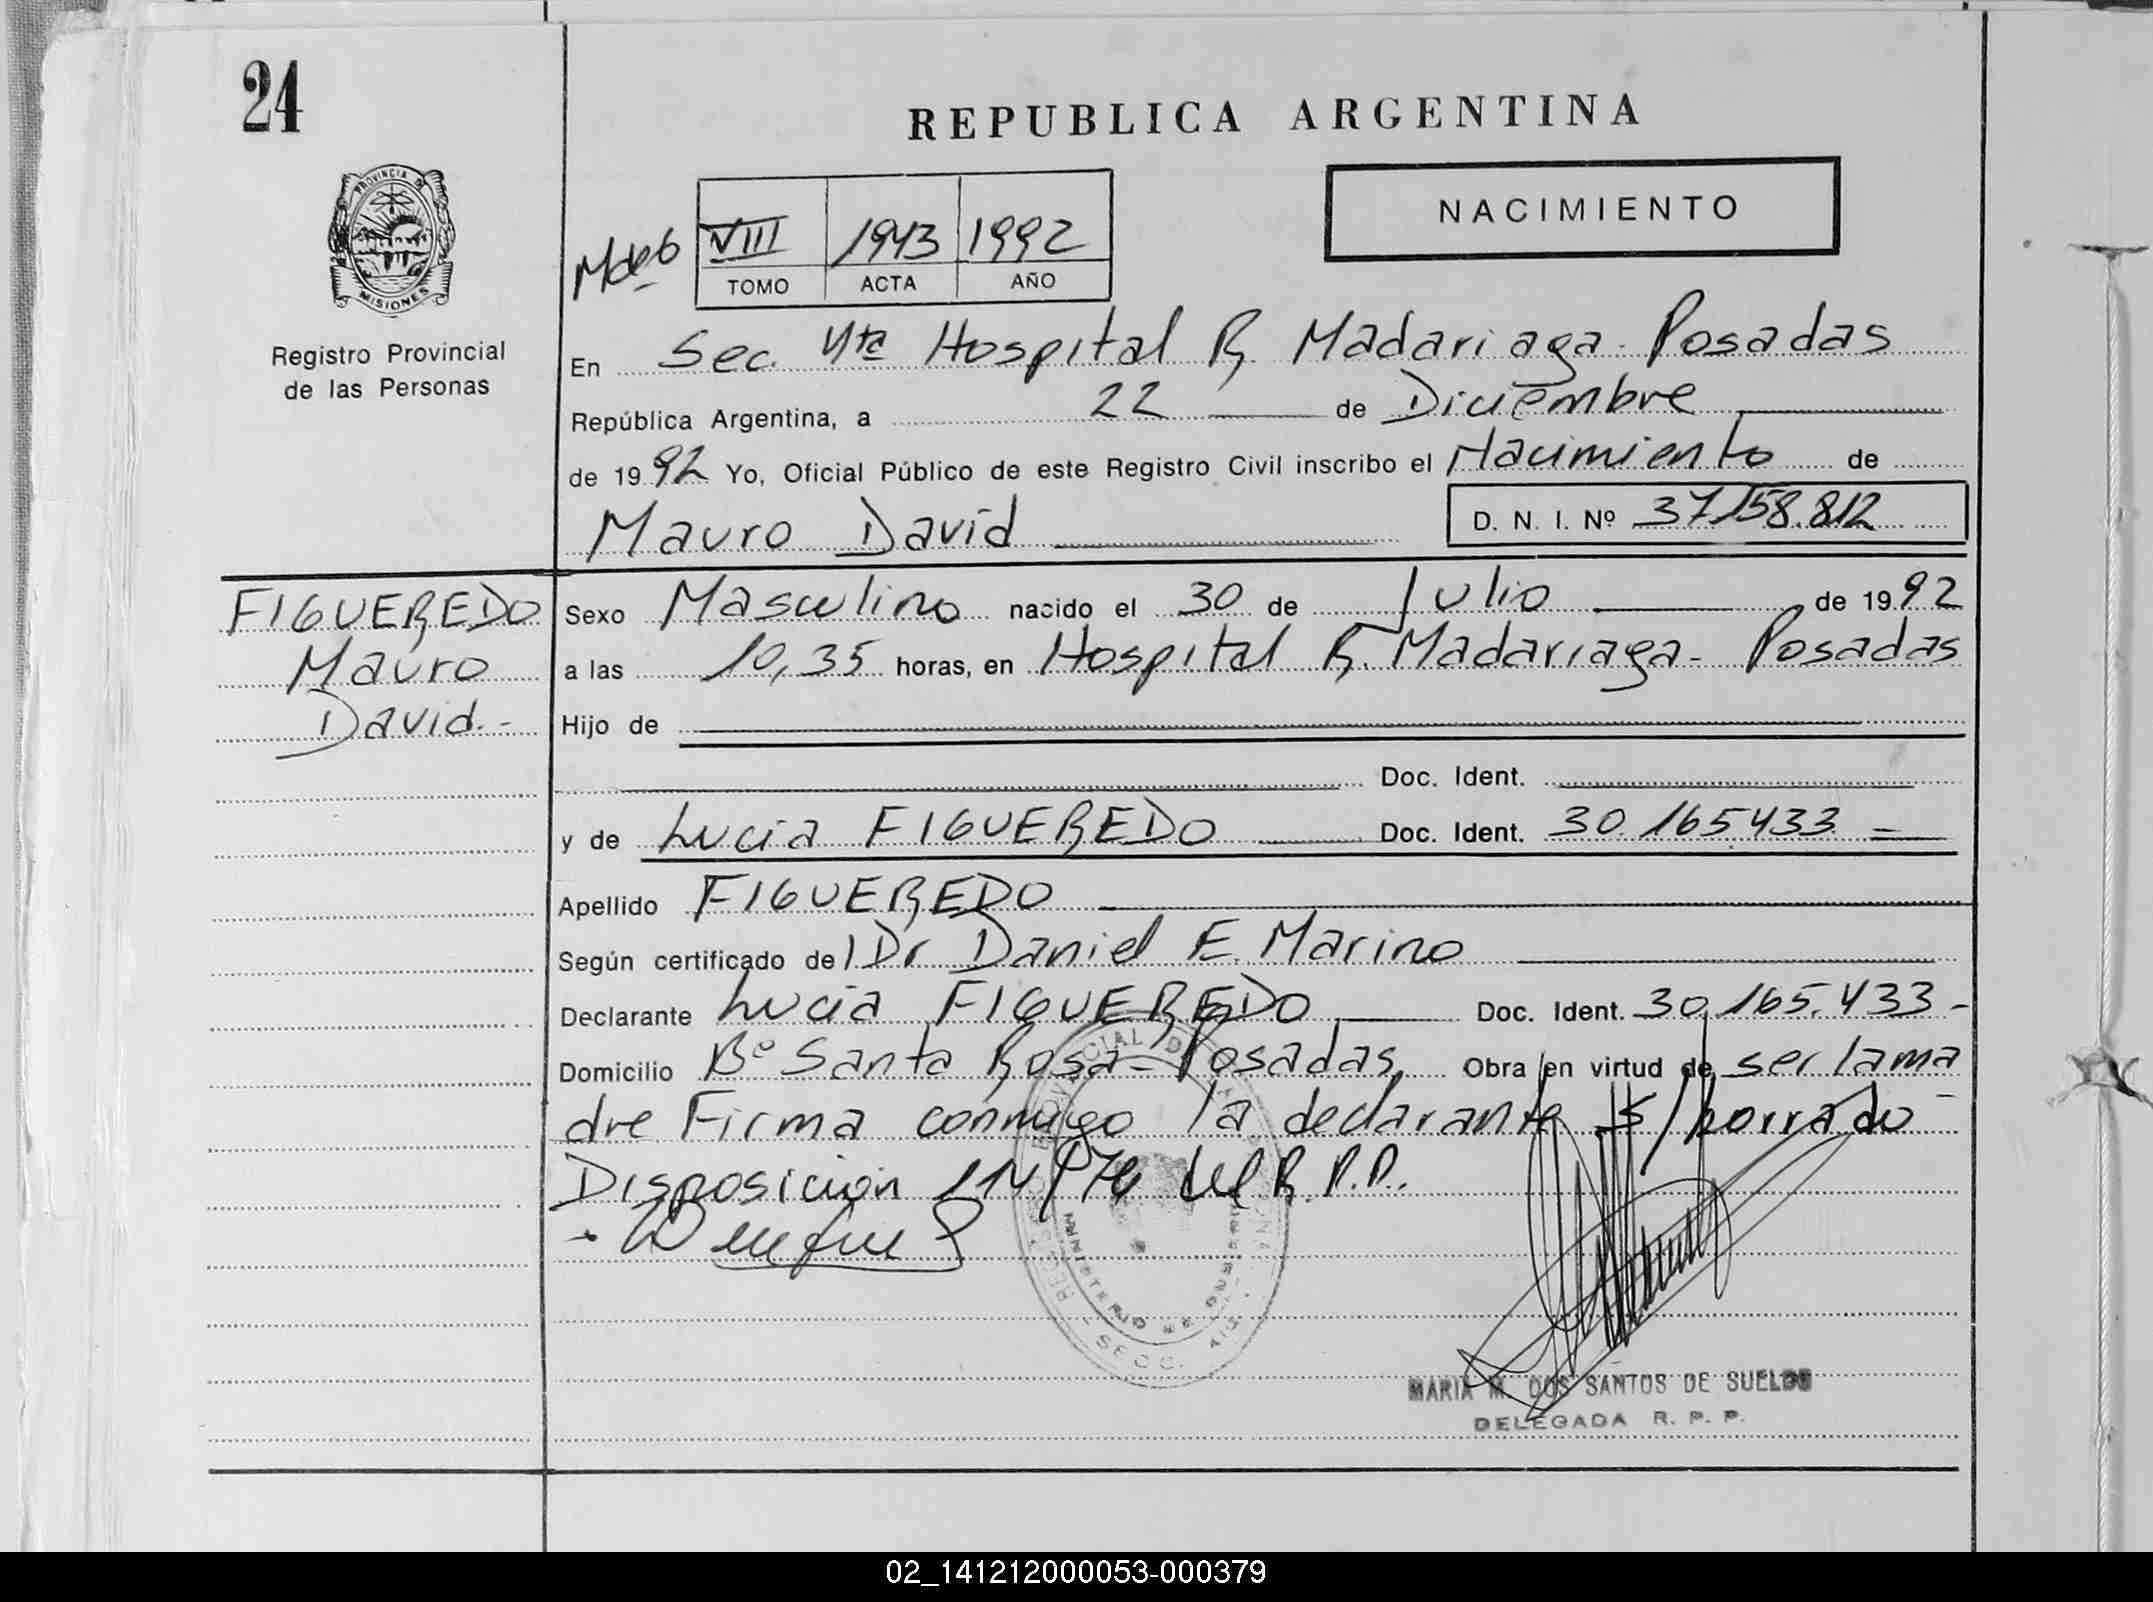 24
REPUBLICA ARGENTINA
PROVINCIA DE
MISIONES
Registro Provincial
de las Personas
NACIMIENTO
VIII 1943 1992
TOMO ACTA AÑO
En Sec. Hospital R. Madariaga - Posadas
República Argentina, a 22 de Diciembre
de 1992 Yo, Oficial Público de este Registro Civil inscribo el Nacimiento de
Mauro David D. N. I. Nº 37.158.812
FIGUEREDO
Mauro
David.-
Sexo Masculino nacido el 30 de Julio de 1992
a las 10,35 horas, en Hospital R. Madariaga - Posadas
Hijo de
Doc. Ident.
y de Lucia FIGUEREDO Doc. Ident. 30.165.433 =
Apellido FIGUEREDO
Según certificado del Dr Daniel E. Marino
Declarante Lucia FIGUEREDO Doc. Ident. 30.165.433-
Domicilio Bº Santa Rosa - Posadas Obra en virtud de ser la ma
dre Firma conmigo la declarante s/borrado -
Disposición del R.P.P.
MARIA M. DOS SANTOS DE SUELDO
DELEGADA R. P. P.
02_141212000053-000379